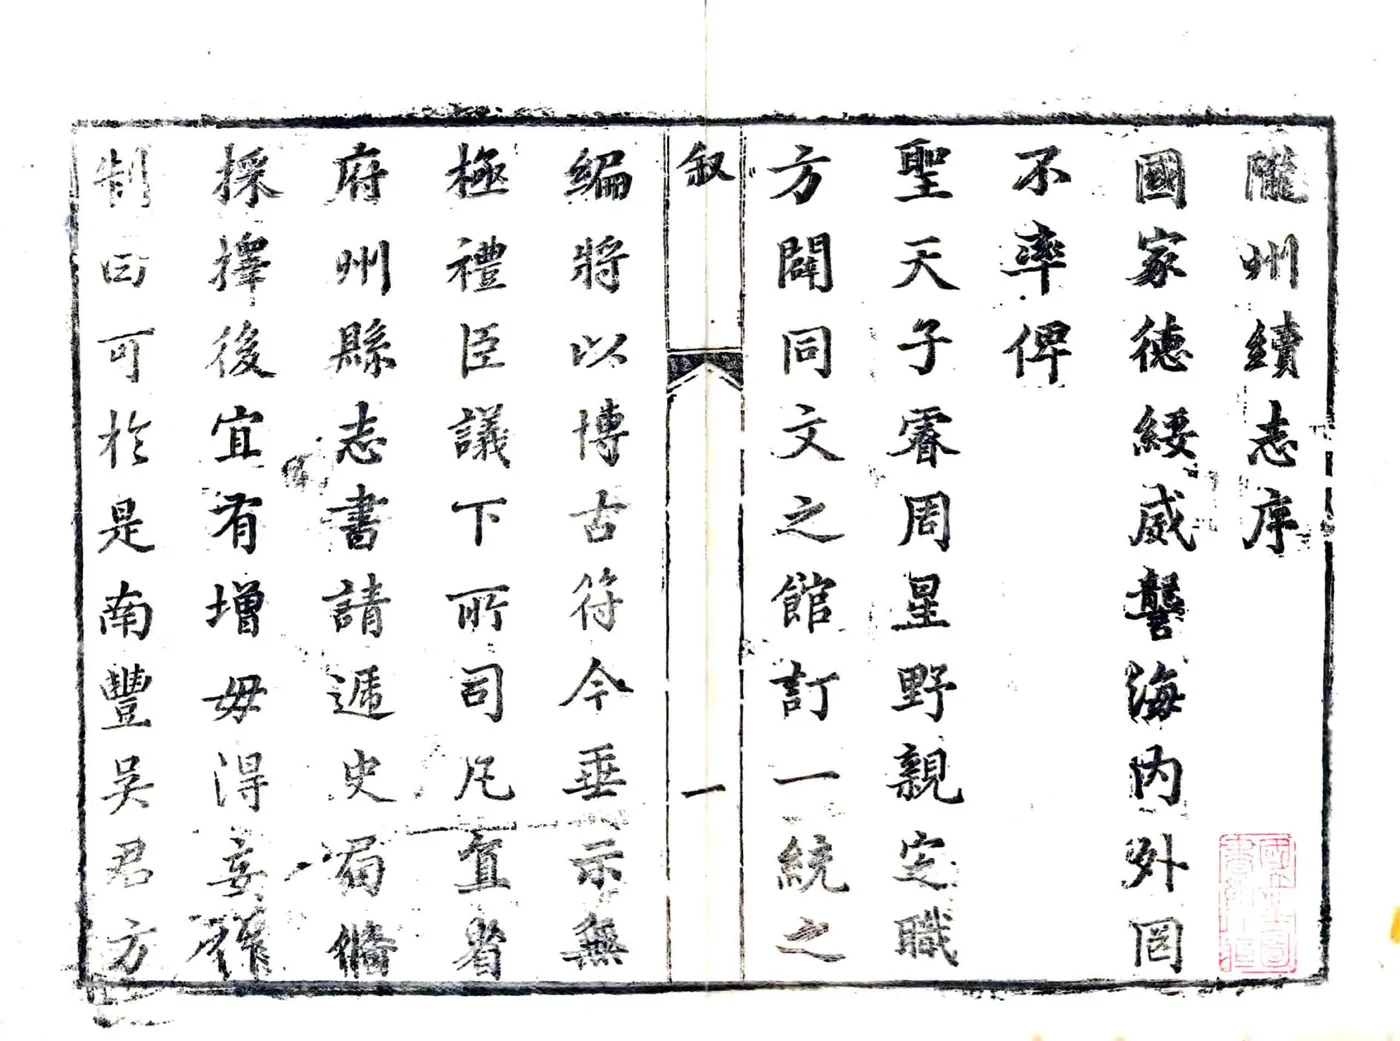 隴州續志序
國家德綏威讋海內外罔
不率俾
聖天子睿周星野親定職
方闢同文之館訂一統之
叙
一
編將以博古符今垂示無
極禮臣議下所司凡直省
府州縣志書請遞史局備
採擇後宜有增毋得妄作
制曰可於是南豐吴君方